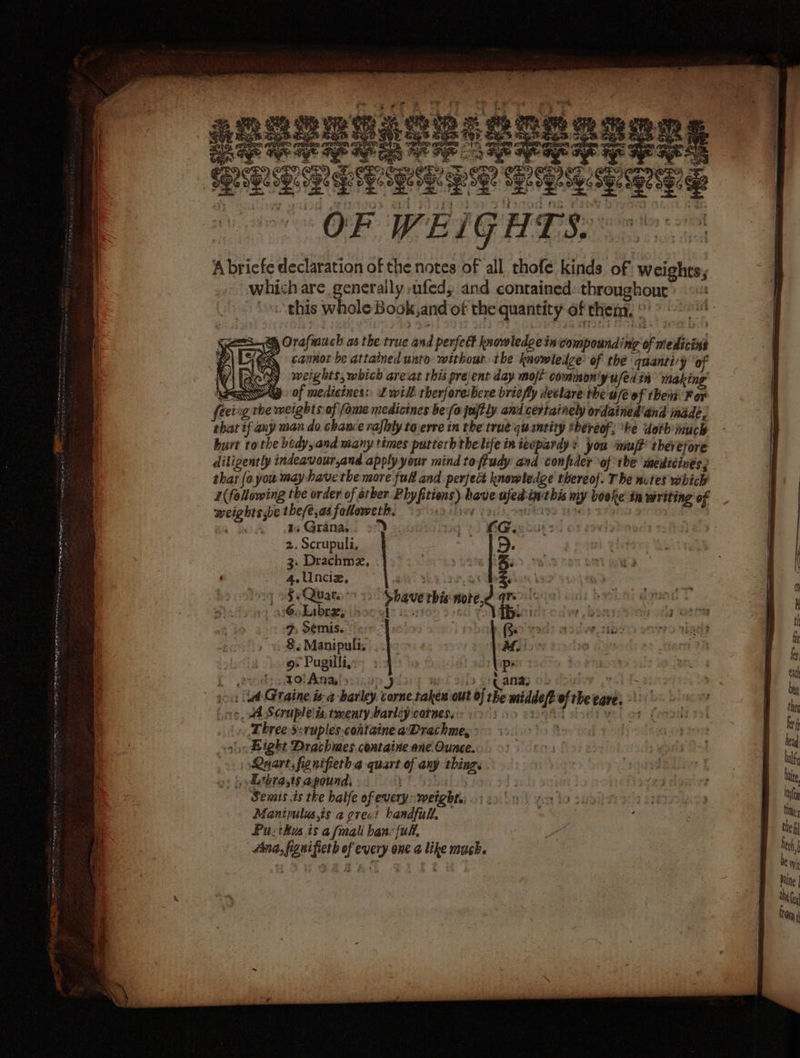 OF WEIGHTS.
A briefe declaration of the notes of all thoſe kinds of weights,
which are generally uſed, and contained throughout
this whole Book, and of the quantity of them.
Foraſmuch as the true and perfect knowledge in compounding of medicins
cannot be attained unto without the knowledge of the quantity of
weights, which are at this preſent day moſt commonly uſed in making
of medicines: I will therfore here briefly declare the uſe of them: For
ſeeing the weights of ſome medicines be ſo juſtly and certainely ordained and made,
that if any man do chance raſhly to erre in the true quantity thereof, he doth much
hurt to the body, and many times putteth the life in ieopardy: you muſt therefore
diligently indeavour, and apply your mind to ſtudy and conſider of the medicines,
that ſo you may have the more full and perfect knowledge thereof. The notes which
I (following the order of other Phyſitions) have uſed in this my booke in writing of
weights, be theſe, as followeth.
1. Grana. G.
2. Scrupuli, Э.
3. Drachmæ, ʒ.
4. Unciæ, ℥.
5. Quar. have this note, qr.
6. Libræ, lb.
7. Semis. ſſ.
8. Manipuli. M.
9. Pugilli, p.
10. Ana, ana,
A Graine is a barley corne taken out of the middeſt of the eare.
A Scruple is twenty barley cornes.
Three Scruples containe a Drachme,
Eight Drachmes containe one Ounce.
Quart, ſignifieth a quart of any thing.
Libra, is a pound.
Semis is the halfe of every weight.
Manipulus, is a great handfull.
Pugillus is a ſmall handfull.
Ana, ſignifieth of every one a like much.